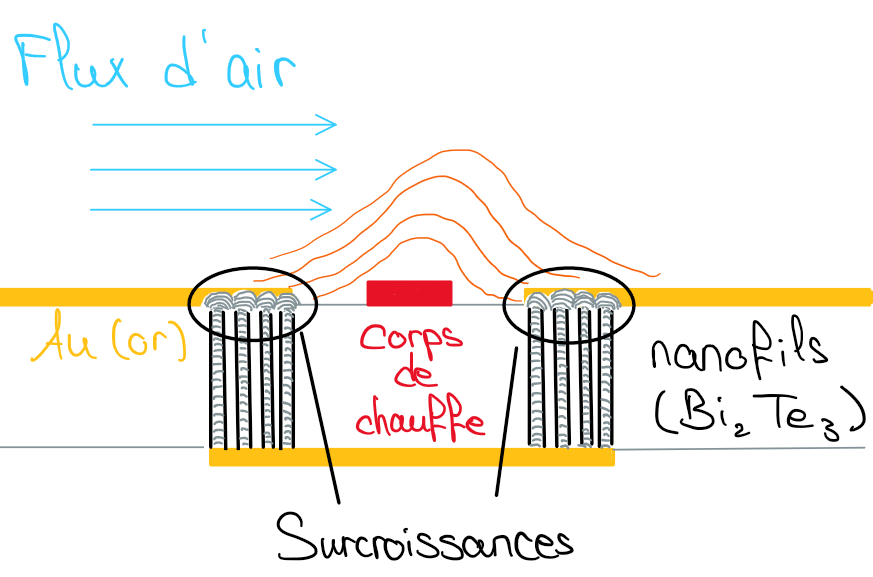 Flux d'air
Au (or)
Corps
de
chauffe
nanofils
(Bi₂Te₃)
Surcroissances